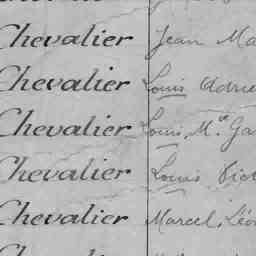 Chevalier Jean Ma
Chevalier Louis Adrie
Chevalier Louis, M.el Ga
Chevalier Louis Vict
Chevalier Marcel, Léon